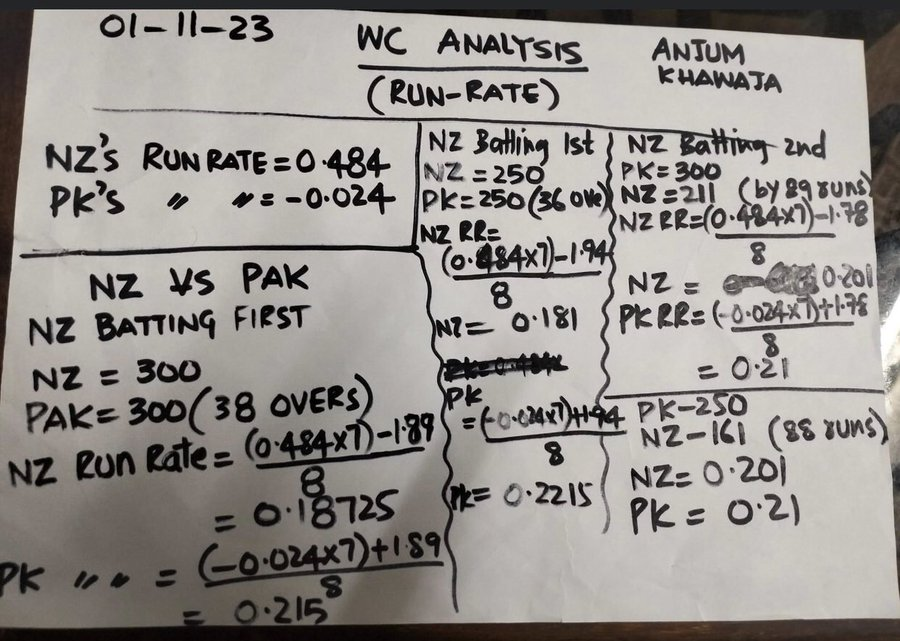 01-11-23
WC ANALYSIS
(RUN-RATE)
ANJUM
KHAWAJA
NZ's RUN RATE = 0.484
PK's " " = -0.024
NZ VS PAK
NZ BATTING FIRST
NZ = 300
PAK = 300 (38 OVERS)
NZ Run Rate = (0.484x7)-1.89
8
= 0.18725
PK " " = (-0.024x7)+1.89
8
= 0.215
NZ Batting 1st
NZ = 250
PK = 250 (36 Ove)
NZ RR =
(0.484x7)-1.94
8
NZ = 0.181
PK
= (-0.024x7)+1.94
8
PK = 0.2215
NZ Batting 2nd
PK = 300
NZ = 211 (by 89 runs)
NZ RR = (0.484x7)-1.78
8
NZ = 0.201
PK RR = (-0.024x7)+1.78
8
= 0.21
PK-250
NZ-161 (88 runs)
NZ = 0.201
PK = 0.21